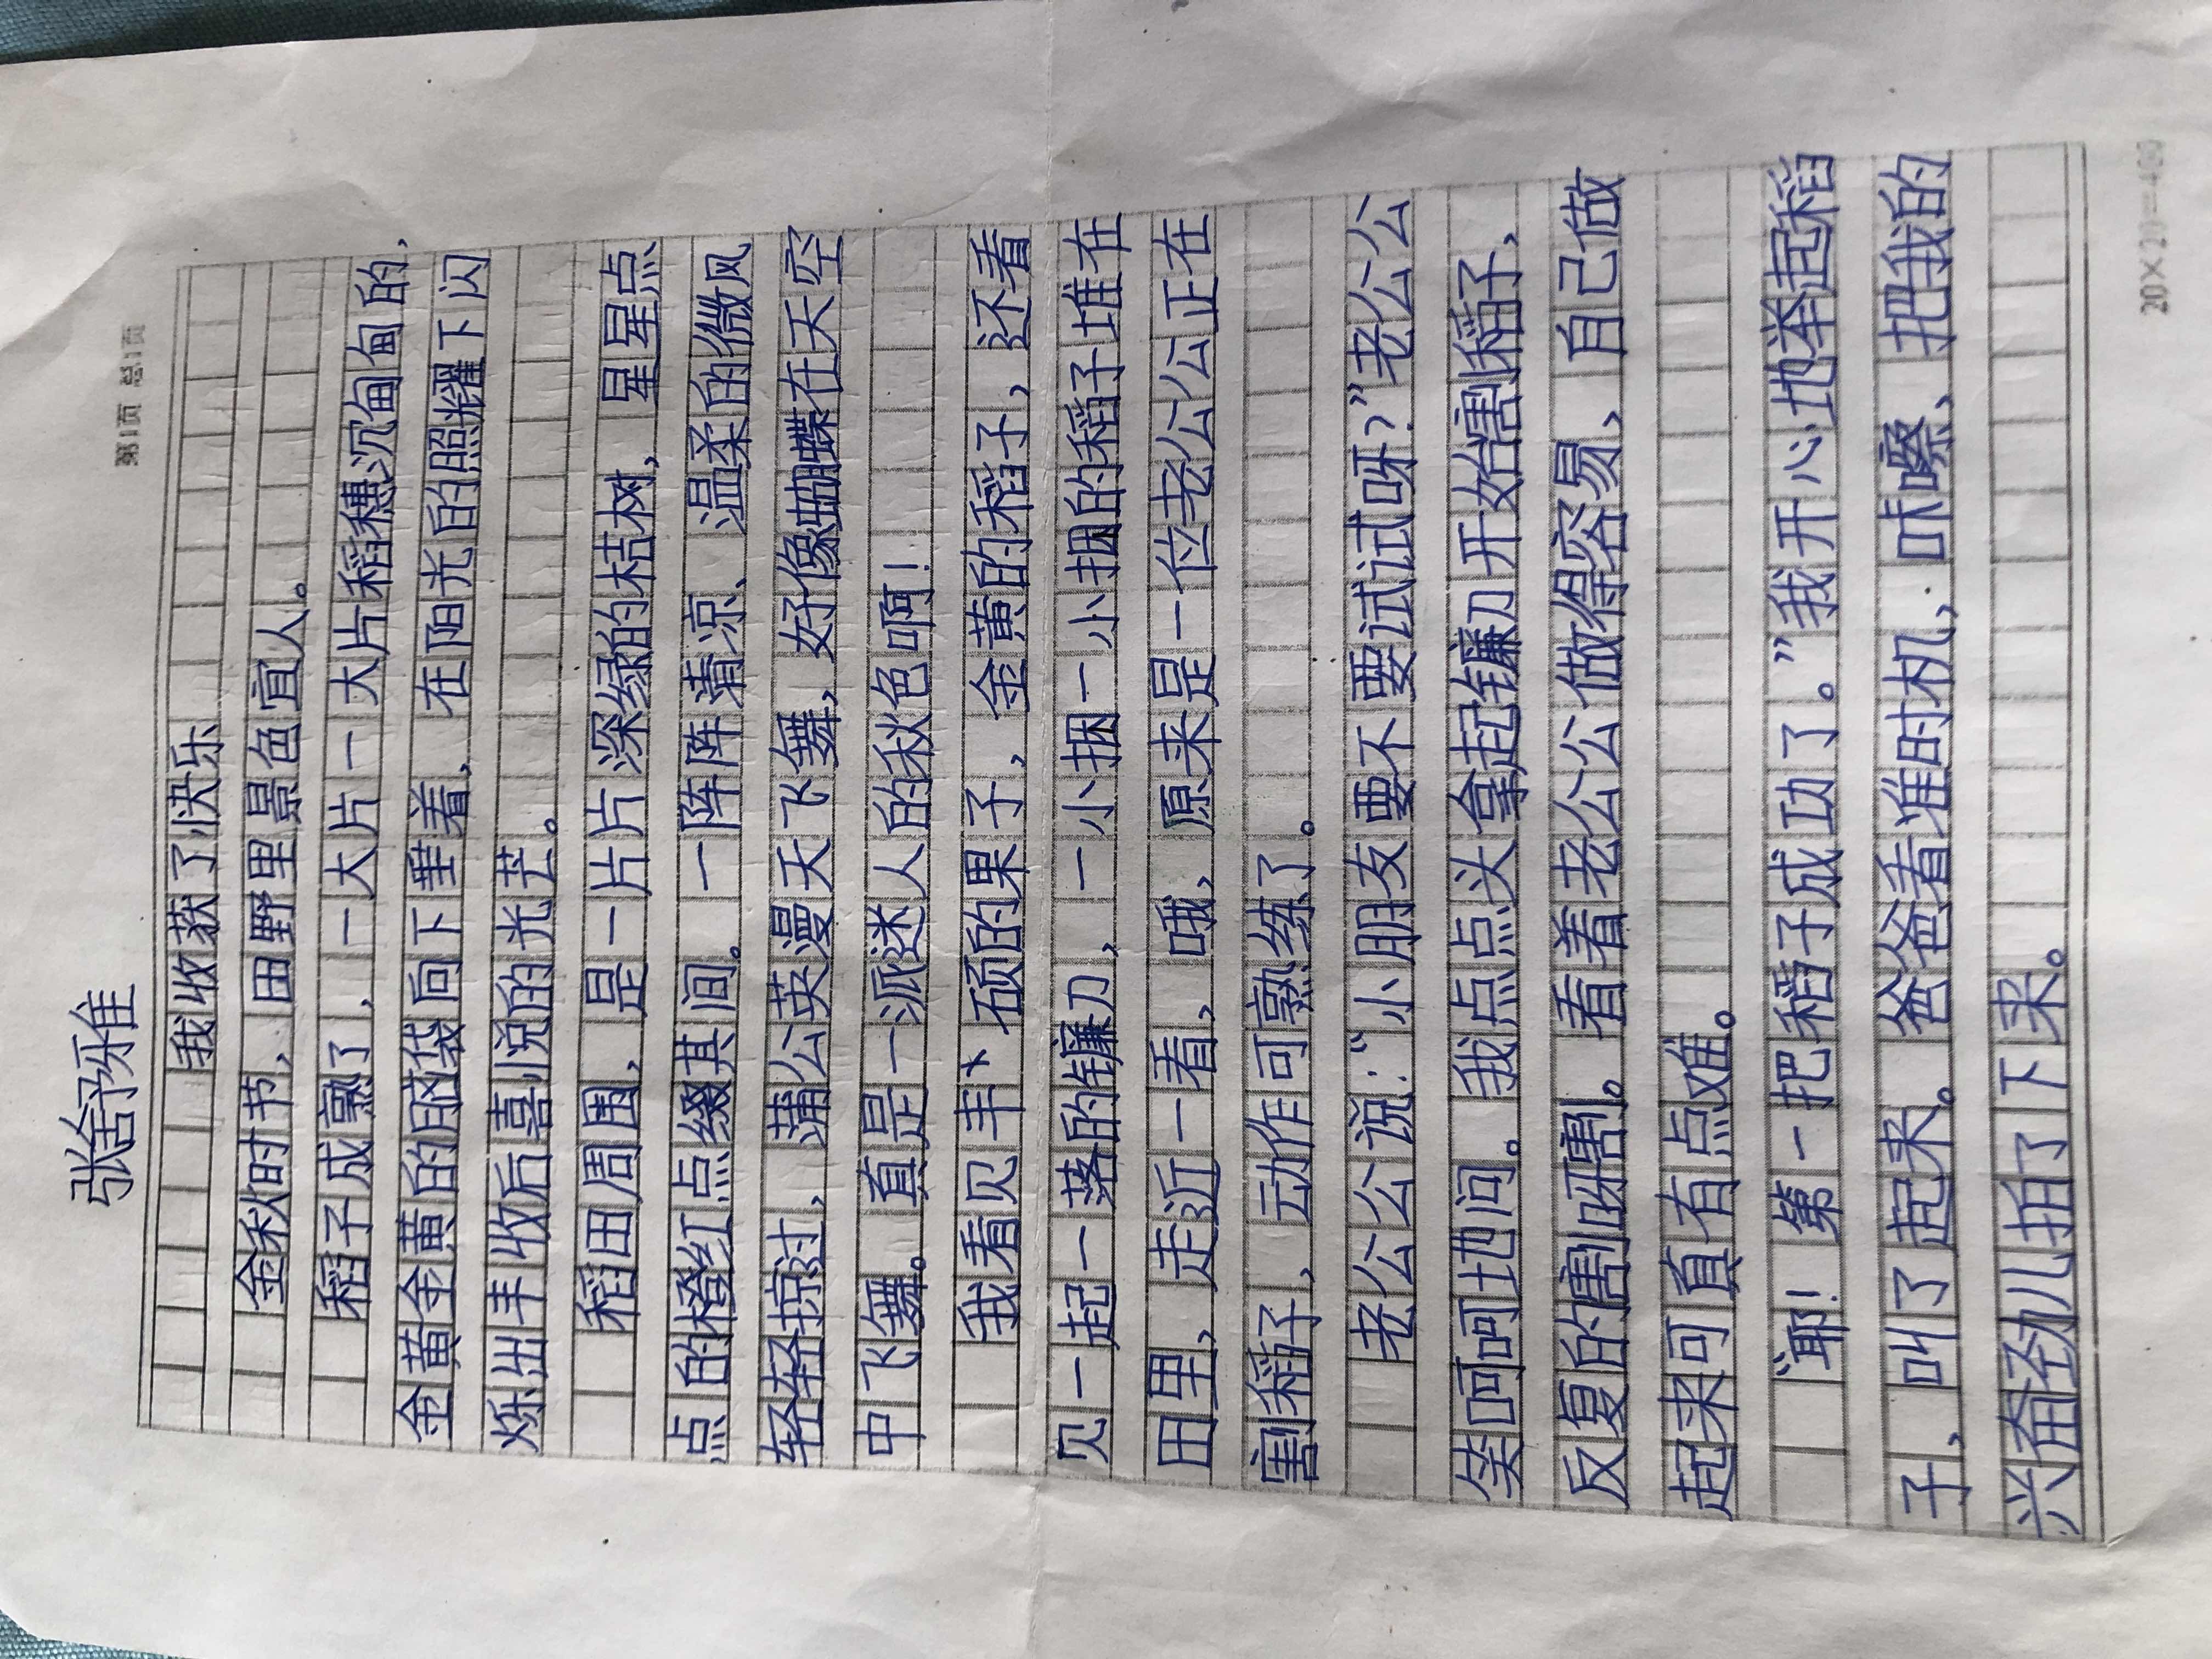 张舍予雅
第1页 总1页
我收获了快乐
金秋时节，田野里景色宜人。
稻子成熟了，一大片一大片稻穗沉甸甸的，
金黄金黄的脑袋向下垂着，在阳光的照耀下闪
烁出丰收后喜悦的光芒。
稻田周围，是一片片深绿的桔树，星星点
点的橙红点缀其间。一阵阵清凉、温柔的微风
轻轻掠过，蒲公英漫天飞舞，好像蝴蝶在天空
中飞舞。真是一派迷人的秋色啊！
我看见丰硕的果子，金黄的稻子，还看
见一起一落的镰刀，一小捆一小捆的稻子堆在
田里，走近一看，哦，原来是一位老公公正在
割稻子，动作可熟练了。
老公公说：“小朋友要不要试试呀？”老公公
笑呵呵地问。我点点头拿起镰刀开始割稻子，
反复的割呀割。看着老公公做得容易，自己做
起来可真有点难。
“耶！第一把稻子成功了。”我开心地举起稻
子，叫了起来。爸爸看准时机，咔嚓，把我的
兴奋劲儿拍了下来。
20×20=400